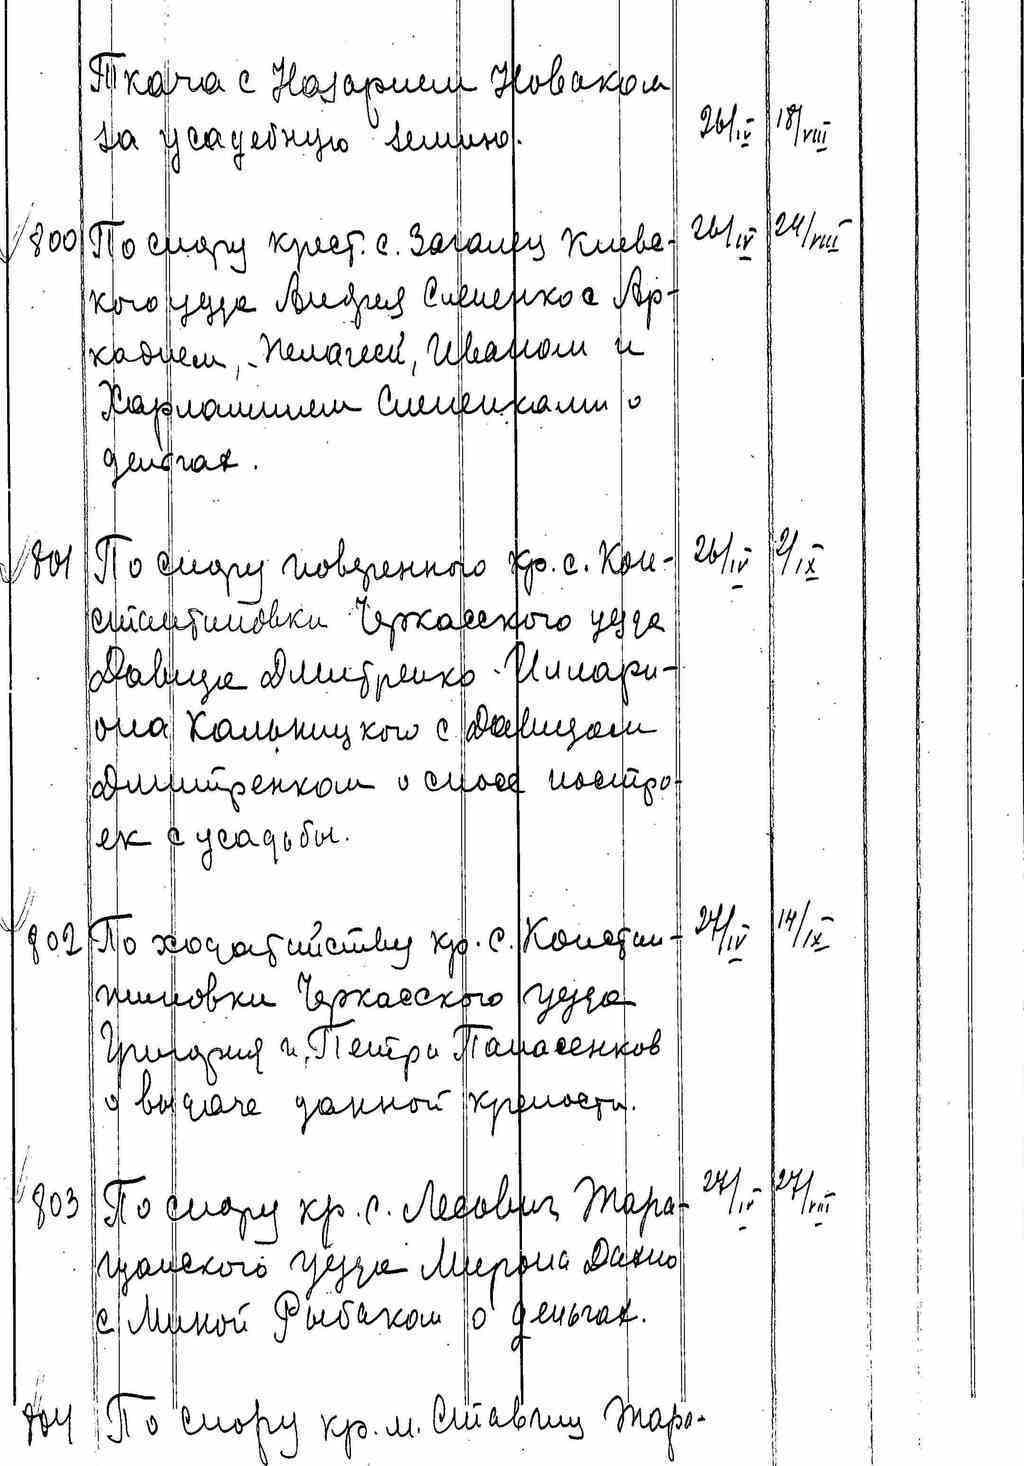 Ткача с Назарием Новаком
за усадебную землю. 26/IV 18/VIII
800 По спору крест. с. Загалец Киевс- 26/IV 24/VIII
кого уезда Андрея Слепенко с Ар-
кадием, Пелагеей, Иваном и
Харлампием Слепенками о
деньгах.
801 По спору поверенного кр. с. Кон- 26/IV 2/IX
стантиновки Черкасского уезда
Давида Дмитренко - Иллари-
она Кальницкого с Давидом
Дмитренком о сносе постро-
ек с усадьбы.
802 По ходатайству кр. с. Констан- 27/IV 14/IX
тиновки Черкасского уезда
Григория и Петра Панасенков
о выдаче данной крепости.
803 По спору кр. с. Лесович Тара- 27/IV 27/VIII
щанского уезда Мирона Дахно
с Миной Рыбаком о деньгах.
804 По спору кр. м. Ставищ Тара-